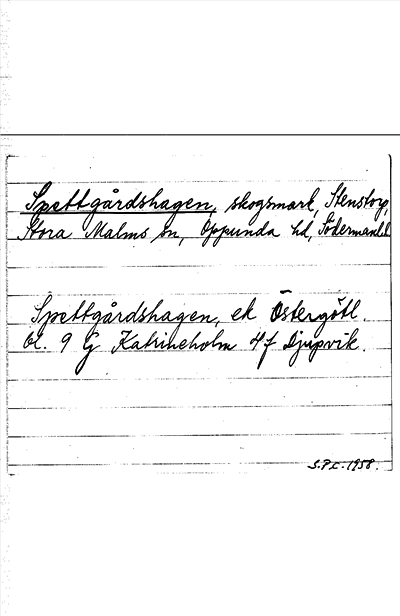 Spettgårdshagen, skogsmark, Stenstorp,
Stora Malms sn, Oppunda hd, Södermanl.
Spettgårdshagen, ek Östergötl.
bl. 9 G Katrineholm 4 f Djupvik.
S.P.L. 1958.